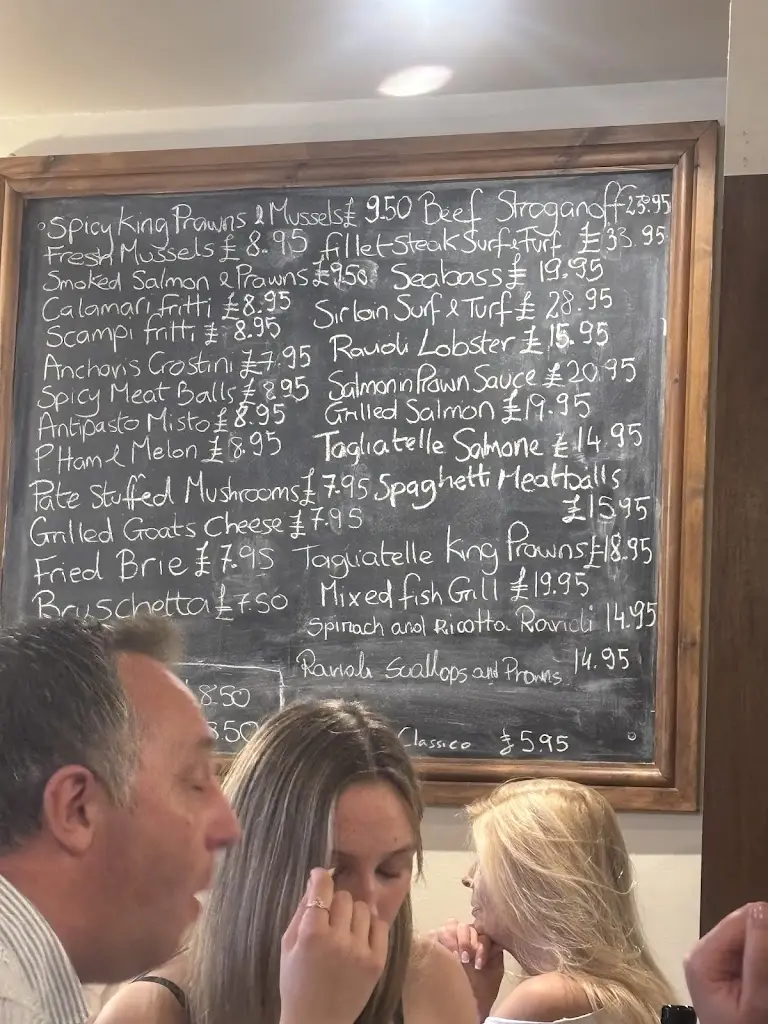 Spicy King Prawns & Mussels £ 9.50
Fresh Mussels £ 8.95
Smoked Salmon & Prawns £9.50
Calamari fritti £8.95
Scampi fritti £ 8.95
Anchovis Crostini £7.95
Spicy Meat Balls £8.95
Antipasto Misto £8.95
P Ham & Melon £8.95
Pate Stuffed Mushrooms £7.95
Grilled Goats Cheese £7.95
Fried Brie £7.95
Bruschetta £7.50
8.50
8.50
Beef Stroganoff
fillet steak Surf & Turf £33.95
Seabass £ 19.95
Sirloin Surf & Turf £ 28.95
Ravioli Lobster £15.95
Salmon in Prawn Sauce £20.95
Grilled Salmon £19.95
Tagliatelle Salmone £14.95
Spaghetti Meatballs
£15.95
Tagliatelle King Prawns £18.95
Mixed fish Grill £19.95
Spinach and Ricotta Ravioli 14.95
Ravioli Scallops and Prawns 14.95
Classico £5.95